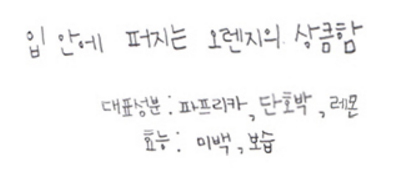 입 안에 퍼지는 오렌지의 상큼함
대표성분 : 파프리카, 단호박, 레몬
효능 : 미백, 보습